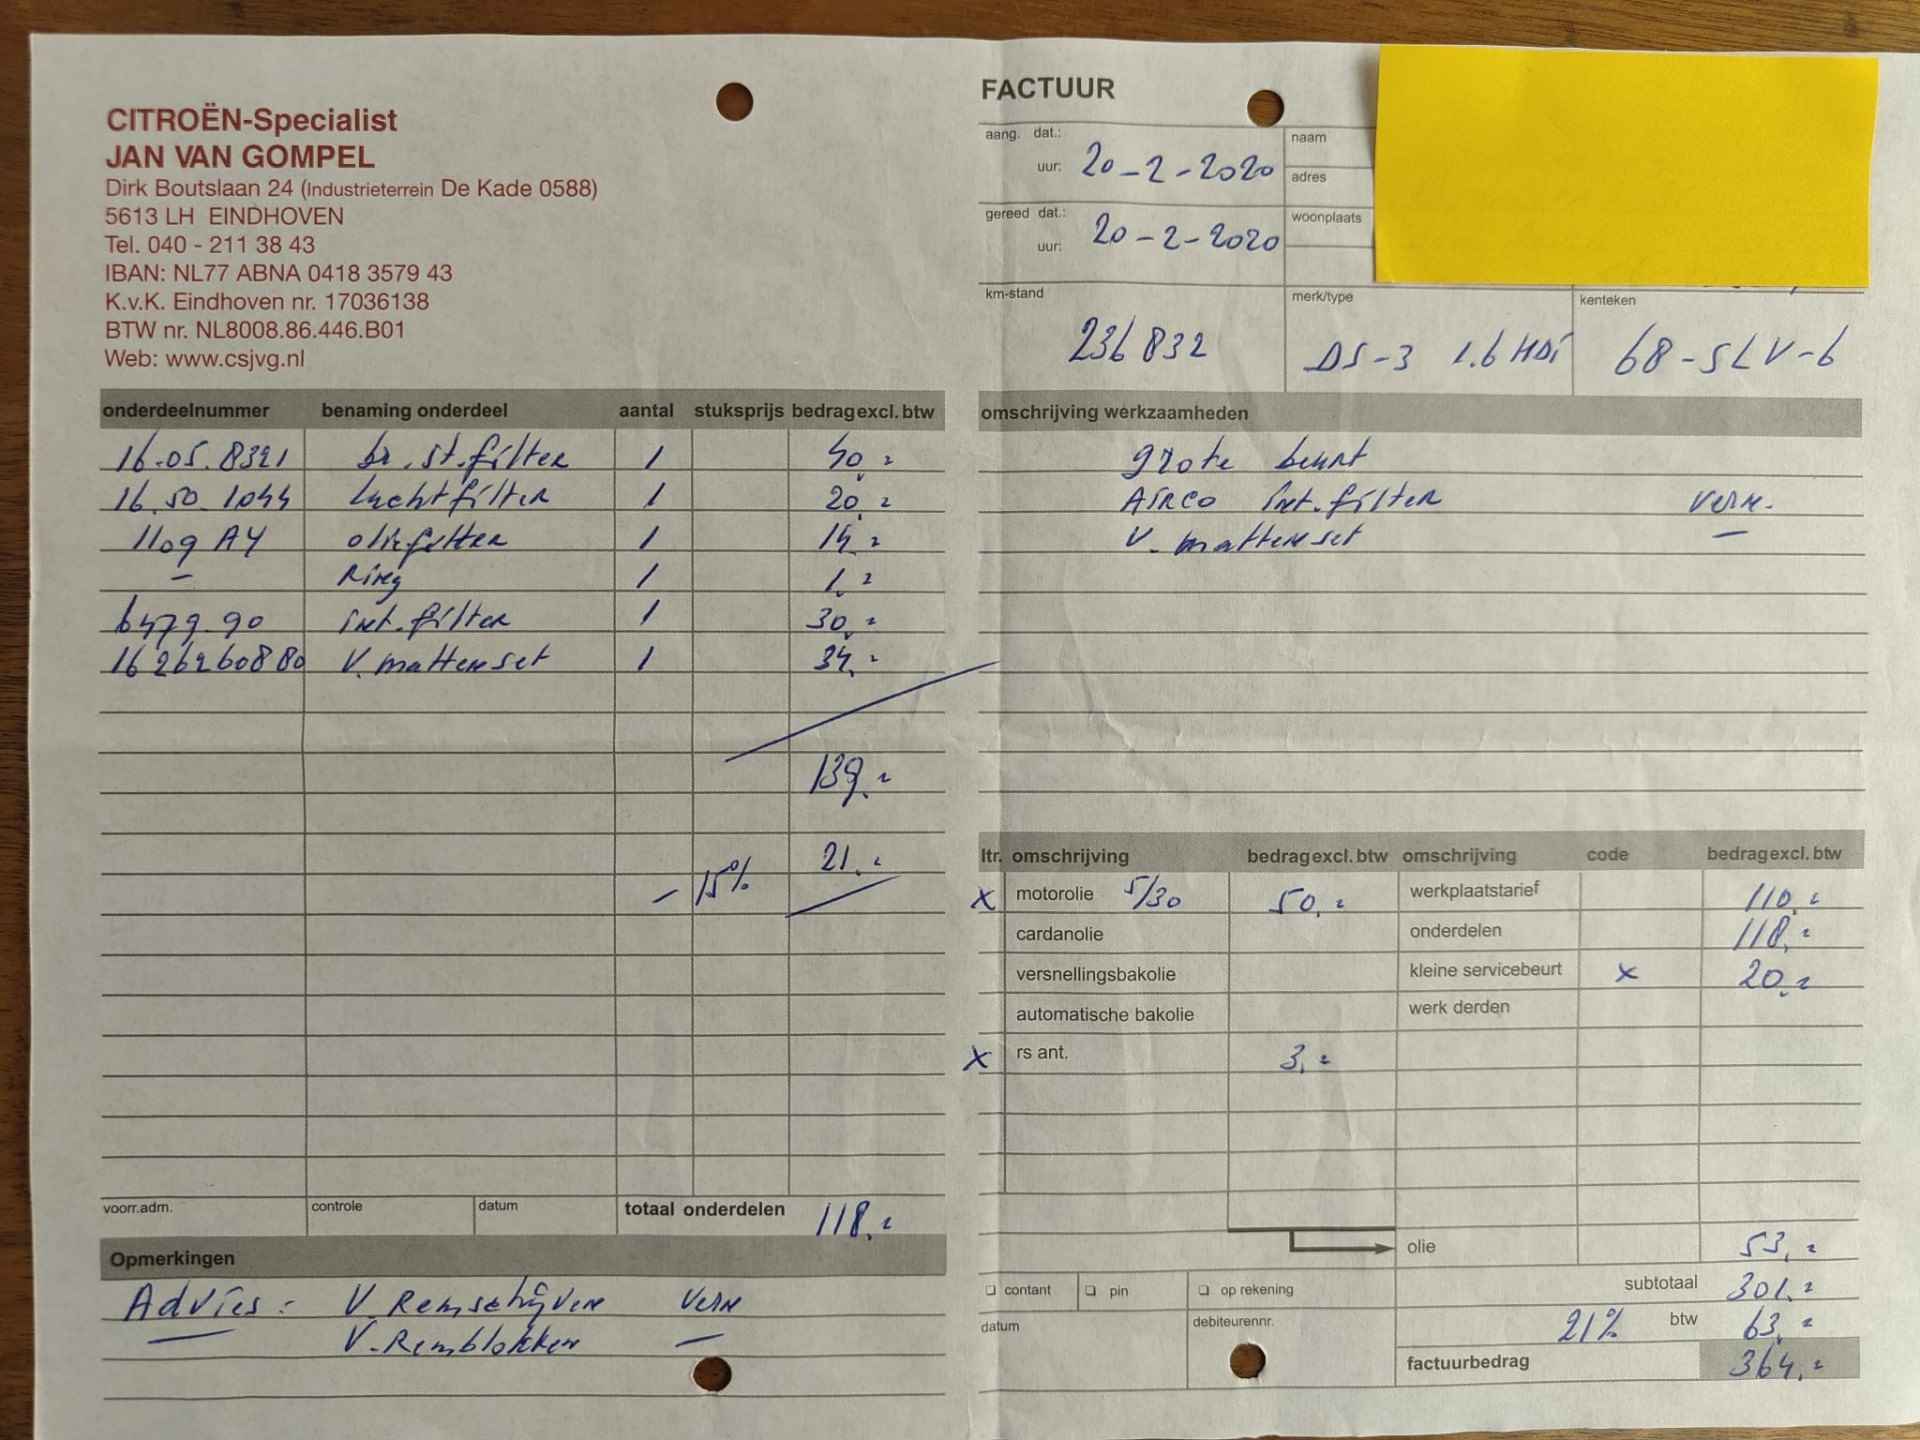 CITROËN-Specialist
JAN VAN GOMPEL
Dirk Boutslaan 24 (Industrieterrein De Kade 0588)
5613 LH EINDHOVEN
Tel. 040 - 211 38 43
IBAN: NL77 ABNA 0418 3579 43
K.v.K. Eindhoven nr. 17036138
BTW nr. NL8008.86.446.B01
Web: www.csjvg.nl
FACTUUR
aang. dat.:
uur: 20-2-2020
naam
adres
gereed dat.:
uur: 20-2-2020
woonplaats
km-stand merk/type kenteken
236832 DS-3 1.6 HDi 68-SLV-6
onderdeelnummer benaming onderdeel aantal stuksprijs bedrag excl. btw
16.05.8321 br.st.filter 1 40,=
16.50.1044 luchtfilter 1 20,=
1109 AY oliefilter 1 14,=
– Ring 1 1,=
6479.90 int.filter 1 30,=
1626260880 V. mattenset 1 34,=
139,=
– 15% 21,=
voorr.adm. controle datum totaal onderdelen 118,=
Opmerkingen
Advies: V Remschijven vern
V-Remblokken –
omschrijving werkzaamheden
grote beurt
Airco int.filter vern.
V. mattenset –
ltr. omschrijving bedrag excl. btw omschrijving code bedrag excl. btw
x motorolie 5/30 50,= werkplaatstarief 110,=
cardanolie onderdelen 118,=
versnellingsbakolie kleine servicebeurt x 20,=
automatische bakolie werk derden
x rs ant. 3,=
olie 53,=
contant pin op rekening subtotaal 301,=
datum debiteurennr. 21% btw 63,=
factuurbedrag 364,=